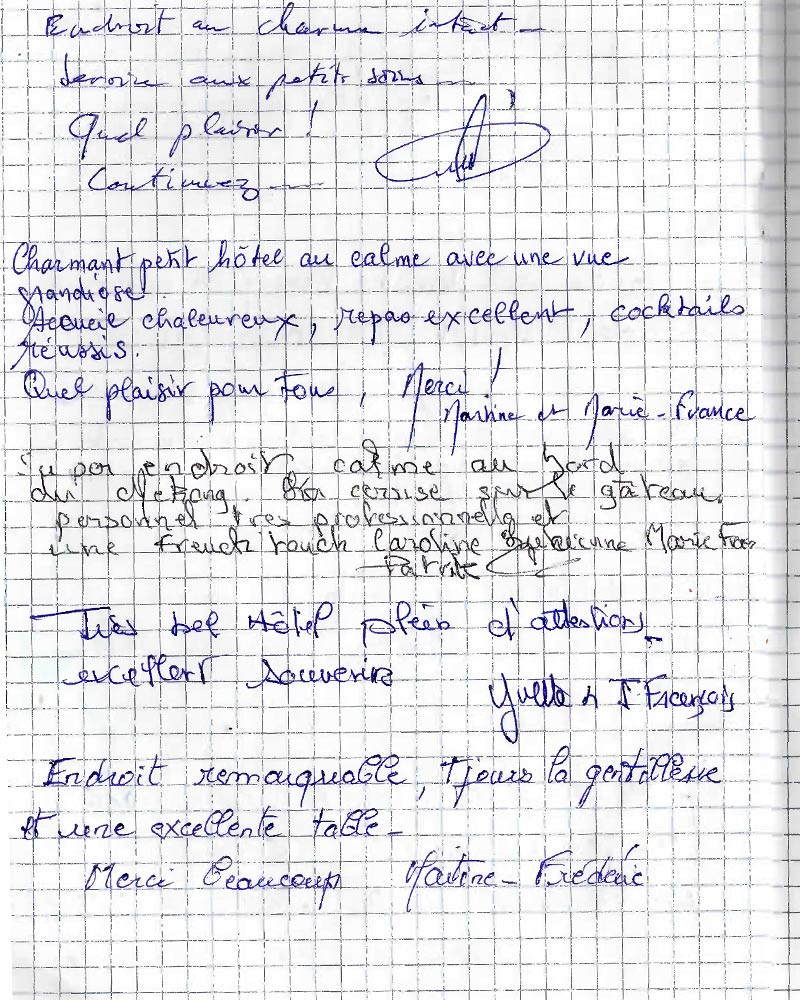 Endroit au charme intact -
aux petits soins
Quel plaisir !
Continuez
Charmant petit hôtel au calme avec une vue
grandiose.
Accueil chaleureux, repas excellent, cocktails
réussis.
Quel plaisir pour Tous, Merci !
Martine et Marie-France
Super endroit, calme au bord
du cerise sur le gâteau.
personnel très professionnelle et
une French touch Caroline Marie
Très bel Hôtel plein d'attentions
excellent souvenirs
Yvette &
Endroit remarquable, Tjours la gentillesse
et une excellente table -
Merci Beaucoup Martine - Frédéric